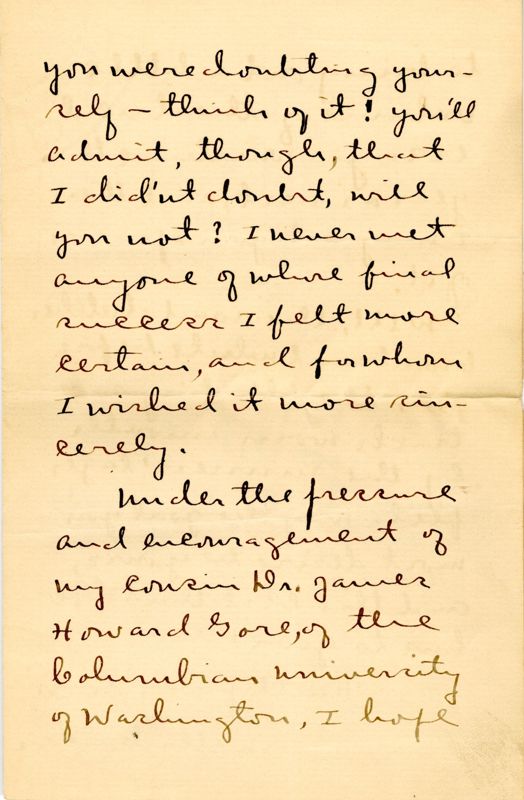 you were doubting your-
self – think of it! you'll
admit, though, that
I did'nt doubt, will
you not? I never met
anyone of whose final
success I felt more
certain, and for whom
I wished it more sin-
cerely.
Under the pressure
and encouragement of
my cousin Dr. James
Howard Gore, of the
Columbian University
of Washington, I hope